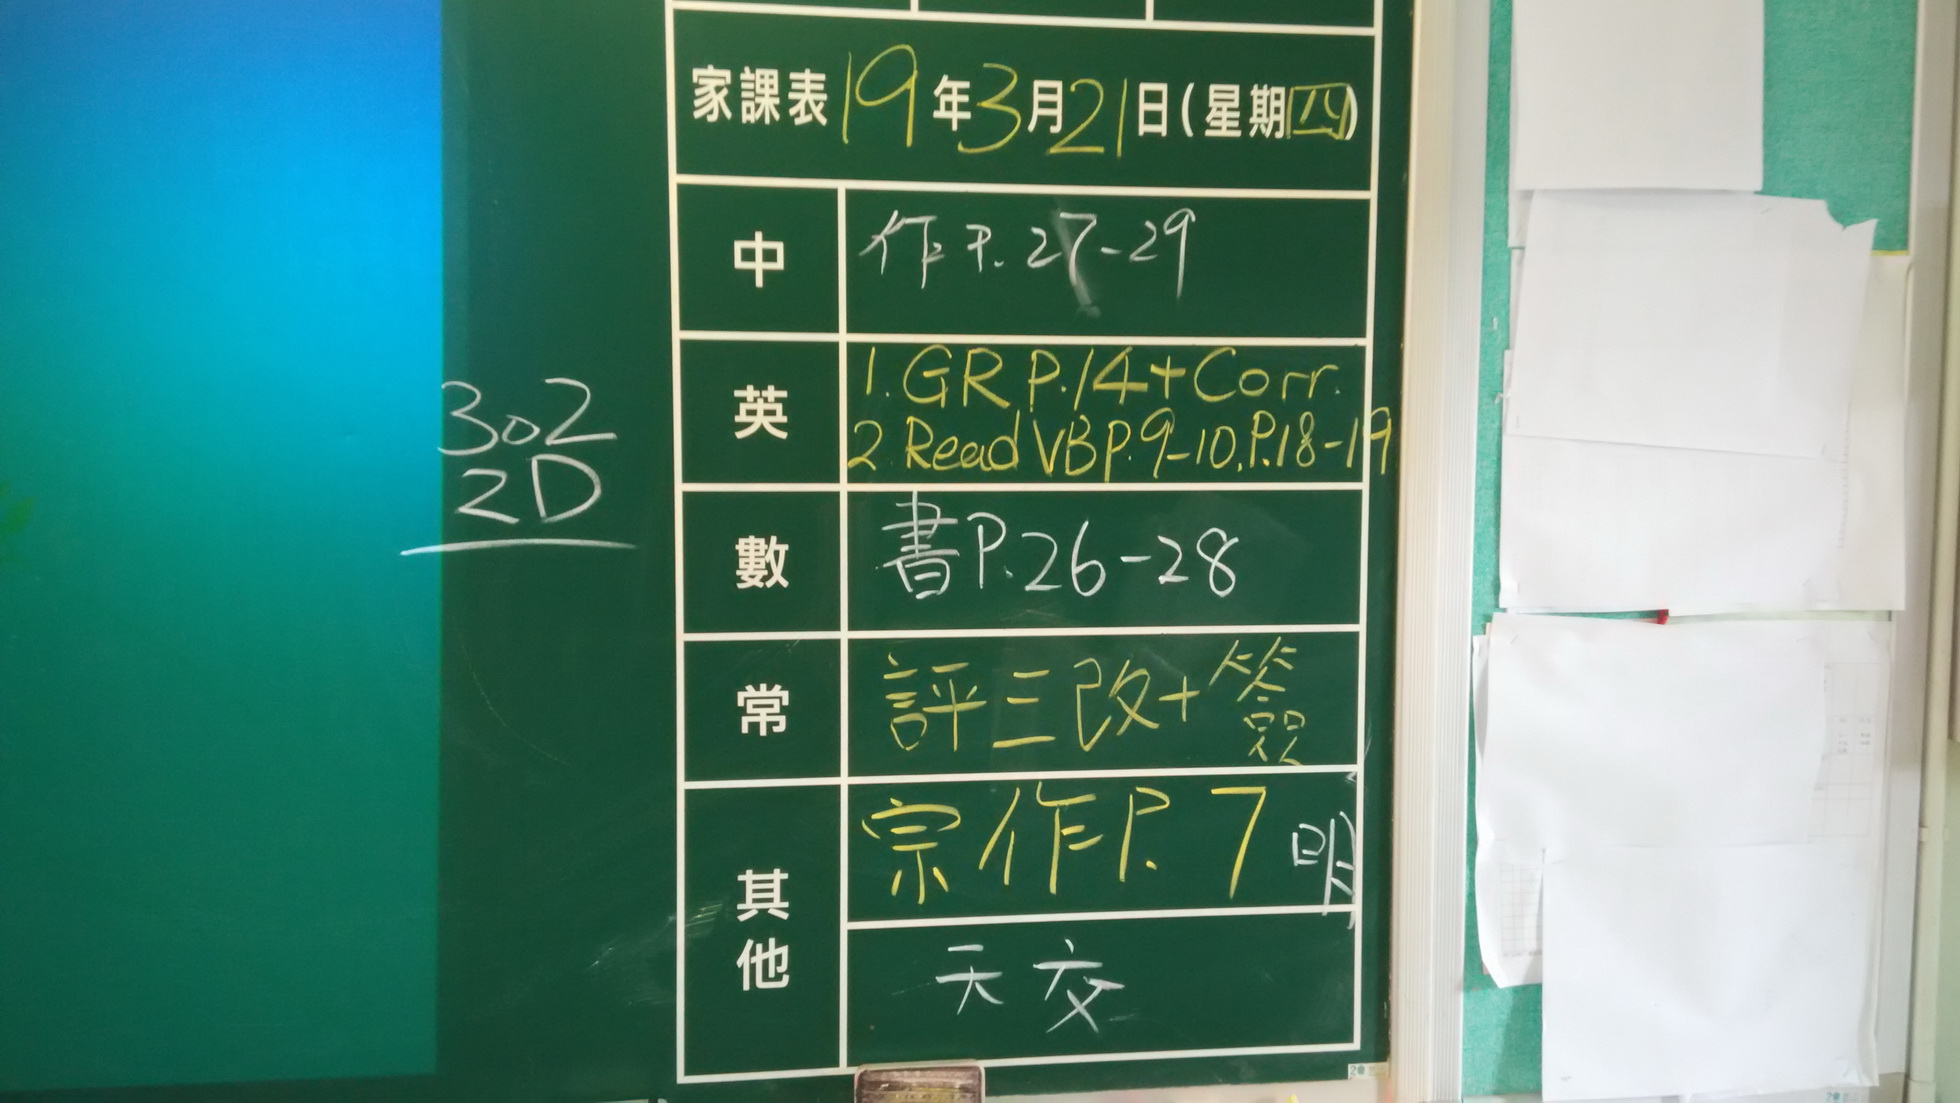 家課表19年3月21日(星期四)
中
作P.27-29
英
1.GR P.14+Corr.
2.Read VB P.9-10,P.18-19
302
2D
數
書P.26-28
常
評三改+簽
其他
宗作P.7
明天交